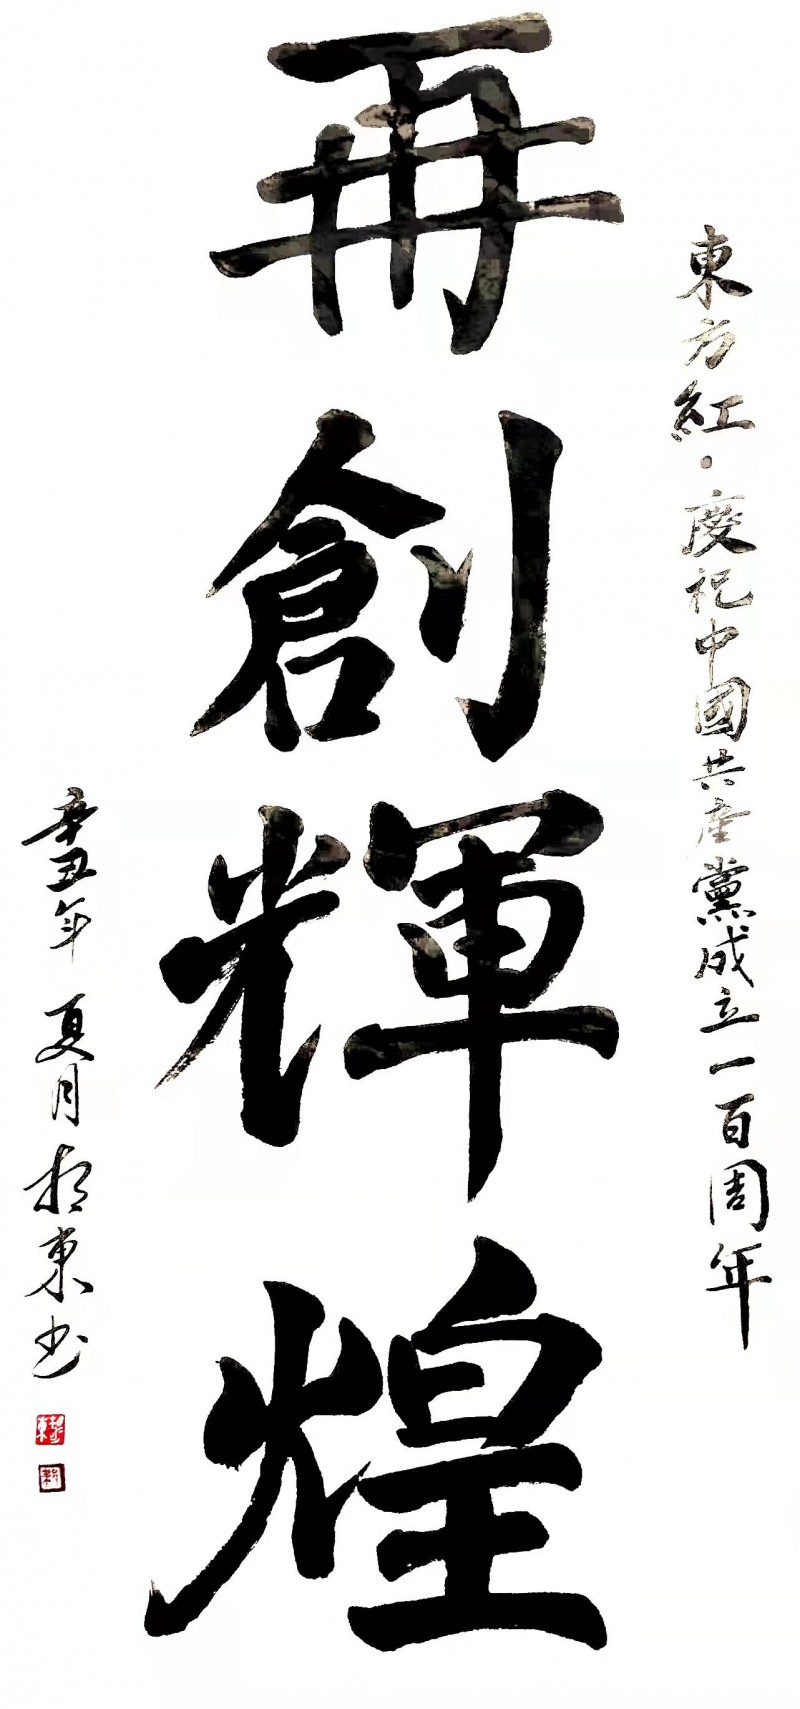 東方紅·慶祝中國共產黨成立一百周年
再創輝煌
辛丑年 夏月 東书